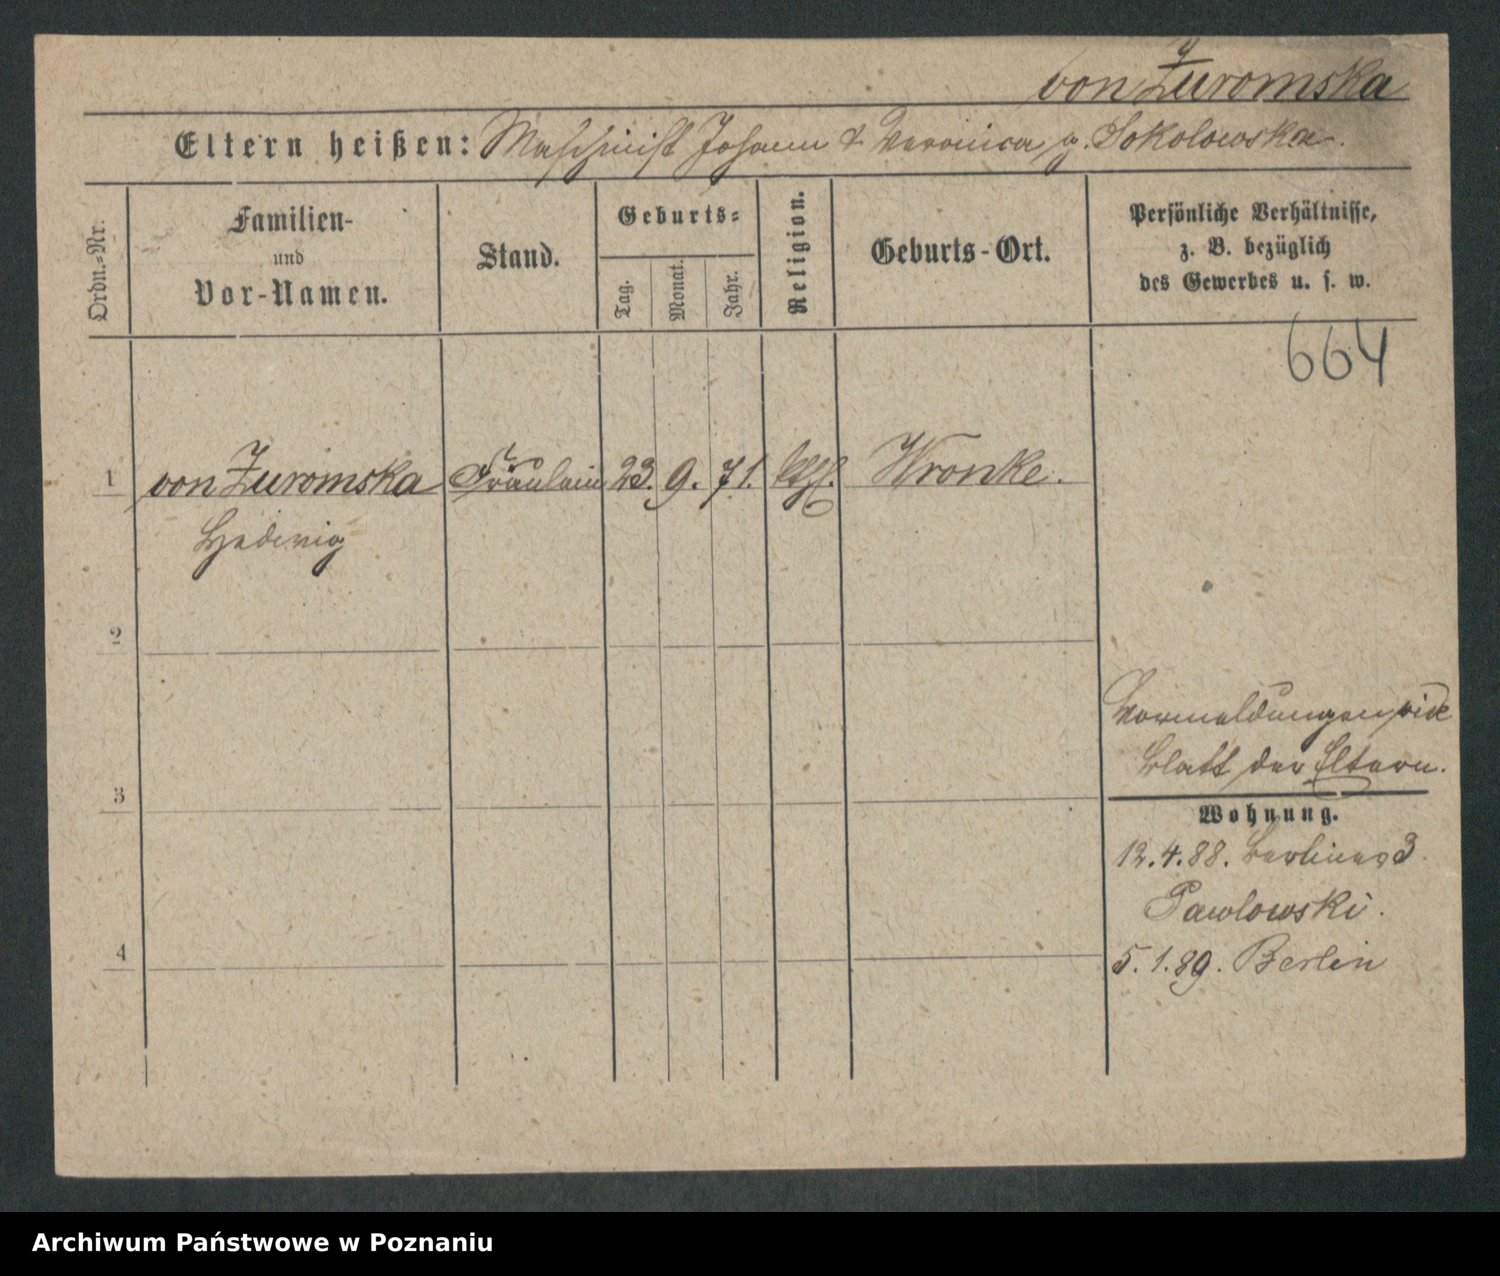 von Zuromska
Eltern heißen: Maschinist Johann & Veronica g. Sokolowska.
Ordn.=Nr.
Familien-
und
Vor-Namen.
Stand.
Geburts=
Tag.
Monat.
Jahr.
Religion.
Geburts-Ort.
Persönliche Verhältnisse,
z. B. bezüglich
des Gewerbes u. s. w.
664
1 von Zuromska Fräulein 23. 9. 71. kthl. Wronke.
Hedwig
2
Vormeldungen vide
Blatt der Eltern.
3
Wohnung.
12.4.88. Berliner 3.
Pawlowski.
4
5.1.89. Berlin
Archiwum Państwowe w Poznaniu